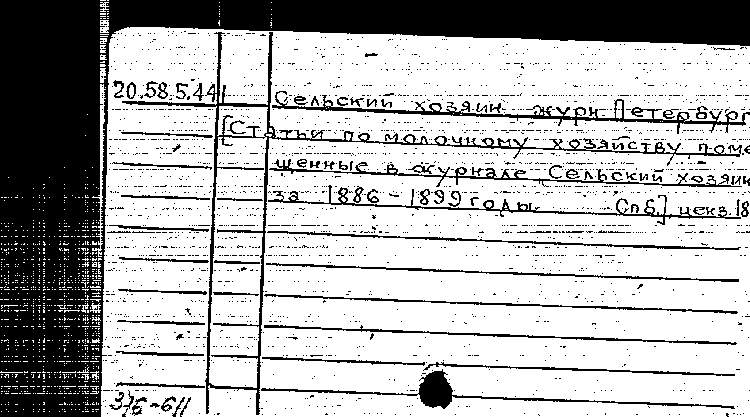 20.58.5.441
Сельский хозяин журн Петербург
[Статьи по молочному хозяйству поме
щенные в журнале Сельский хозяин
за 1886-1899 годы. Спб.], ценз. 18
376-611